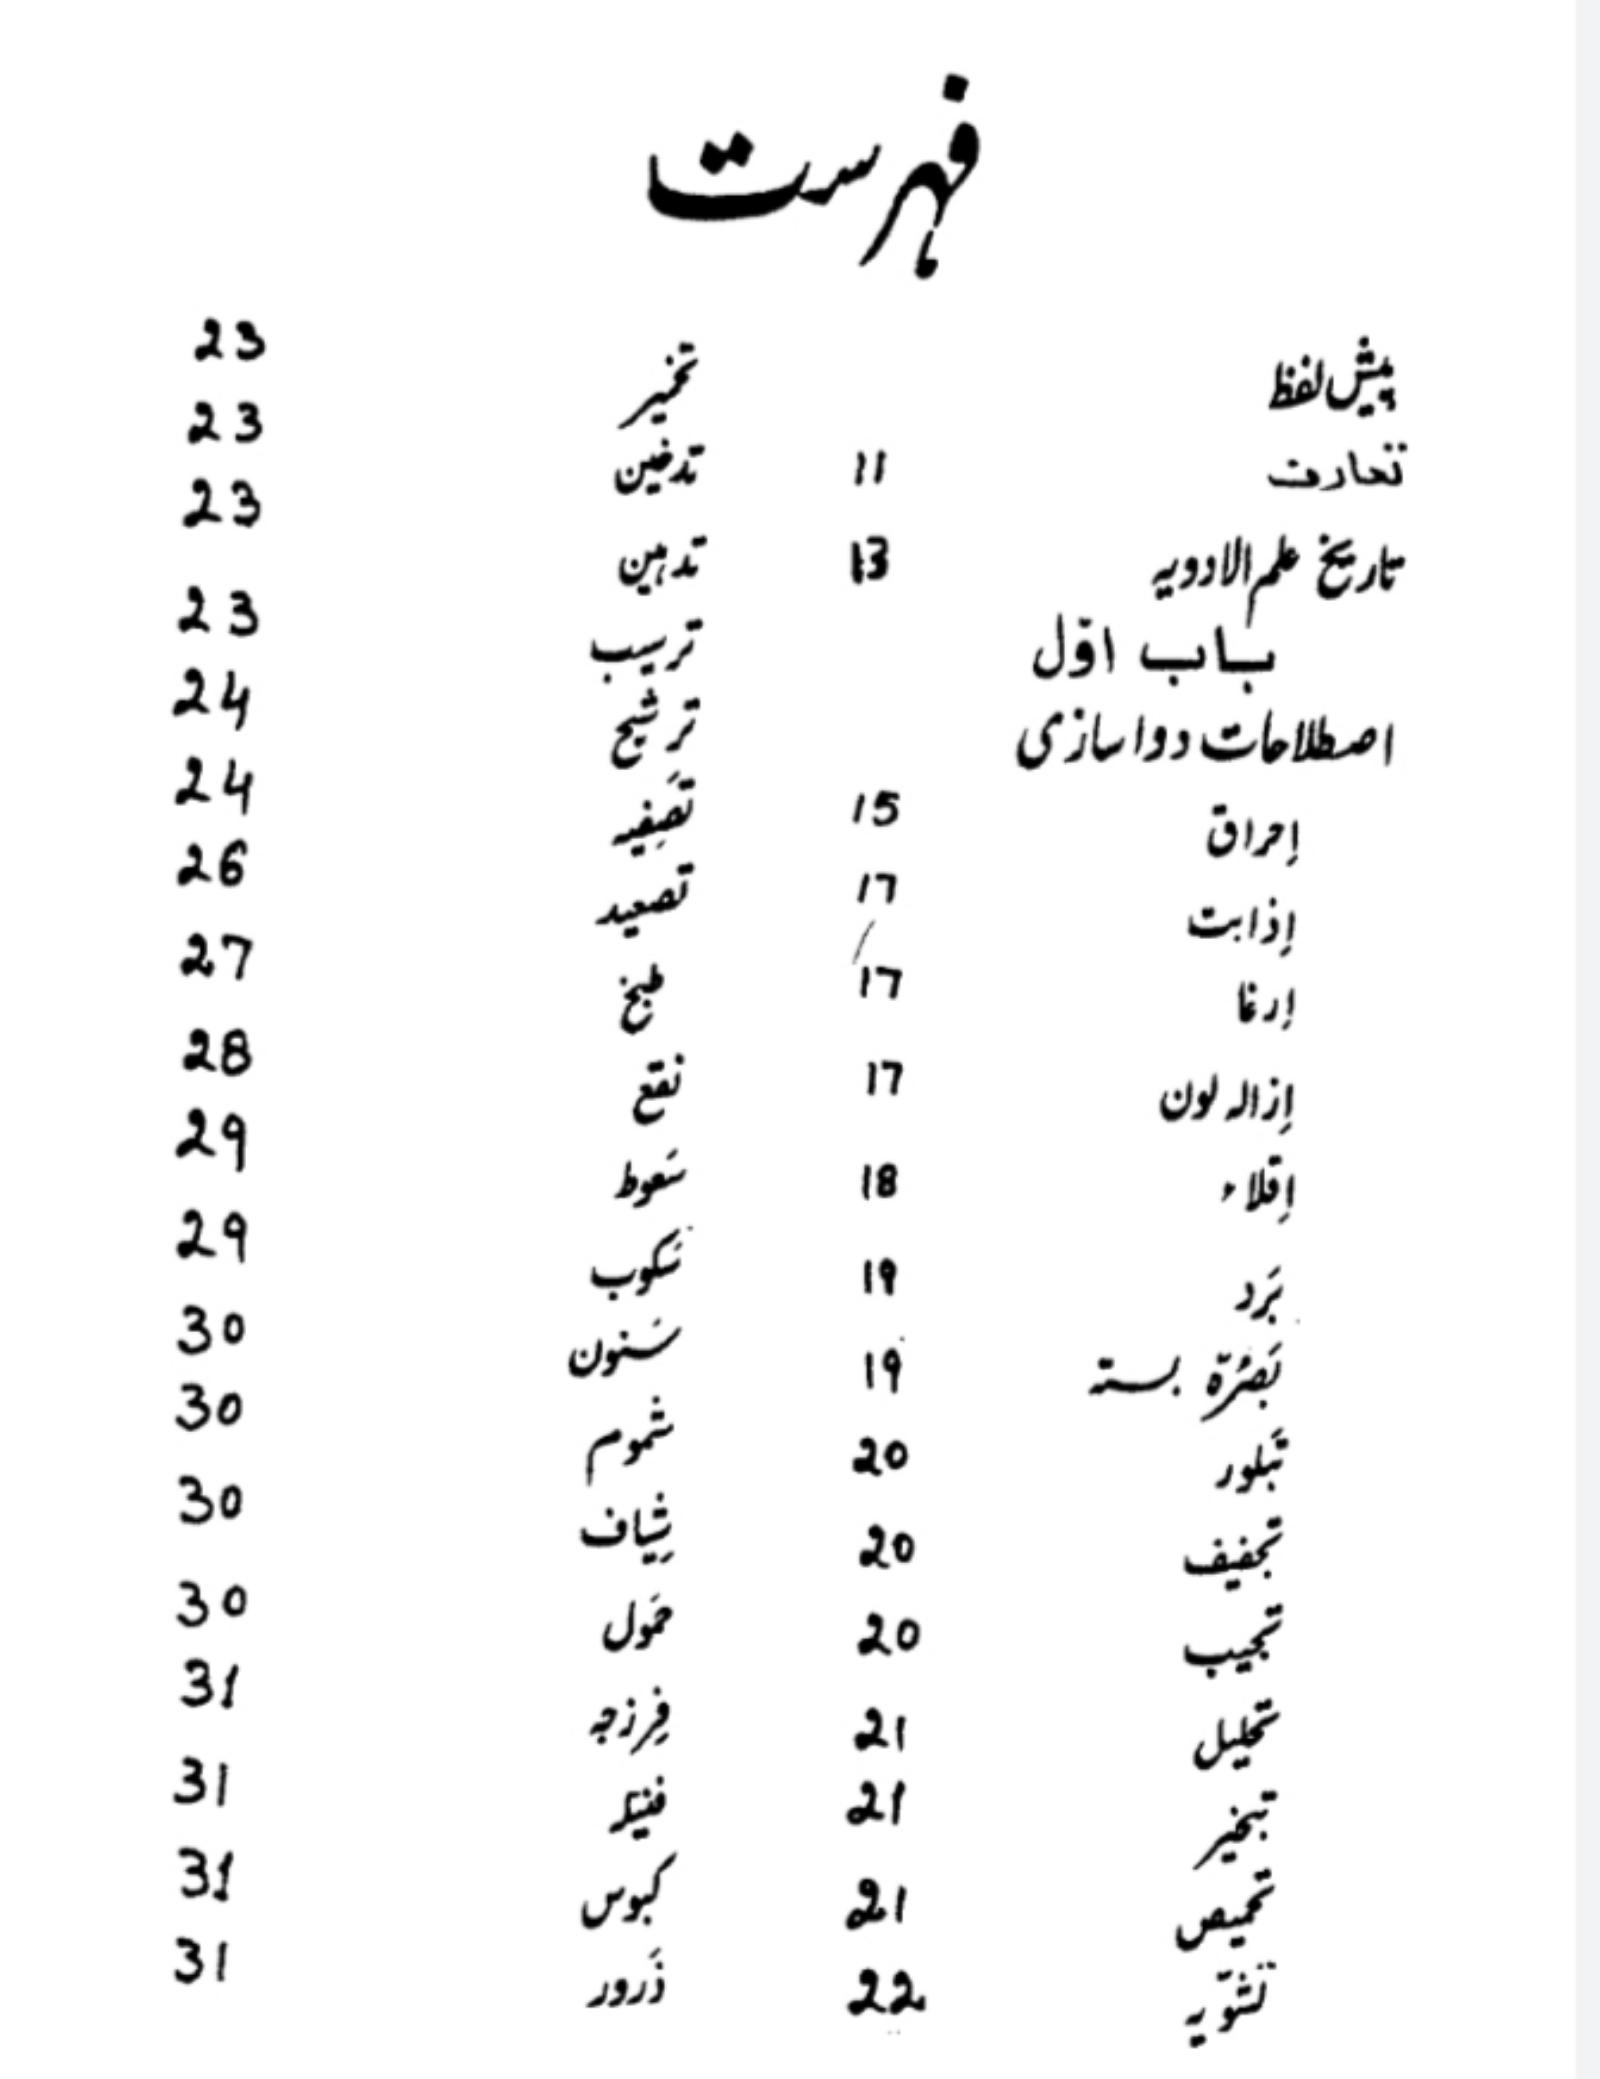 فہرست
پیش لفظ
تعارف 11
تاریخ علم الادویہ 13
باب اوّل
اصطلاحات دواسازی
اِحراق 15
اِذابت 17
اِرغا 17
اِزالہ لون 17
اِقلاء 18
بَرد 19
بَصُرّہ بستہ 19
تَبلور 20
تجفیف 20
تجبیب 20
تحلیل 21
تبخیر 21
تحمیص 21
تشوّیہ 22
تخمیر 23
تدخین 23
تدہین 23
ترسیب 23
ترشیح 24
تَصفِیہ 24
تصعید 26
طبخ 27
نقع 28
سَعوط 29
سَکوب 29
سَنون 30
شموم 30
شِیاف 30
حَمول 30
فِرزجہ 31
فتیلہ 31
کبوس 31
ذَرور 31